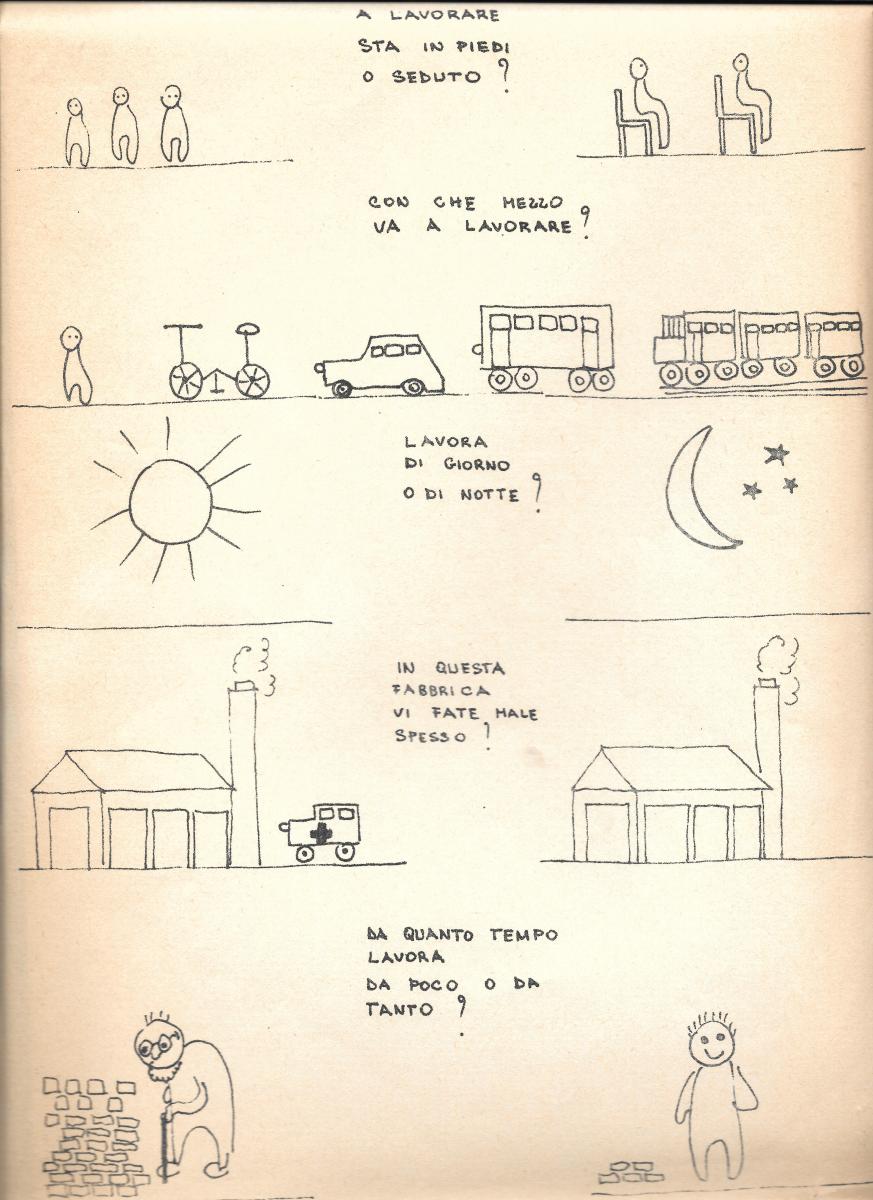 A LAVORARE
STA IN PIEDI
O SEDUTO ?
CON CHE MEZZO
VA A LAVORARE ?
LAVORA
DI GIORNO
O DI NOTTE ?
IN QUESTA
FABBRICA
VI FATE MALE
SPESSO ?
DA QUANTO TEMPO
LAVORA
DA POCO O DA
TANTO ?